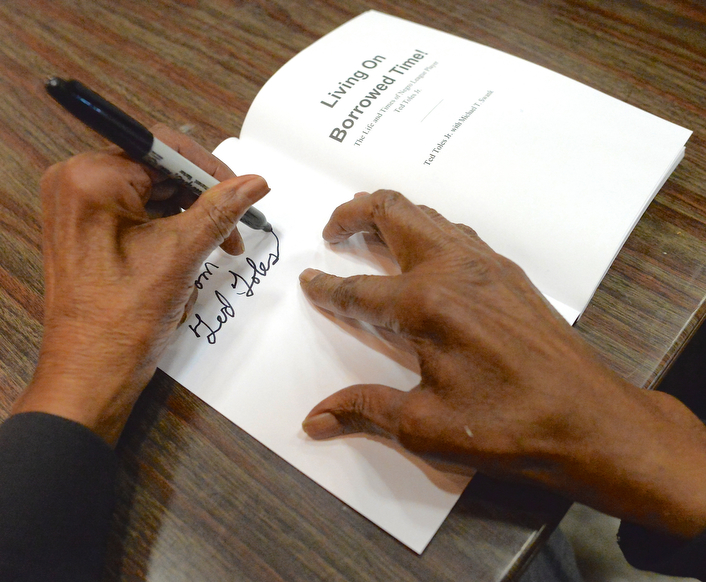 Living On
Borrowed Time!
The Life and Times of Negro League Player
Ted Toles Jr.
Ted Toles Jr. with Michael T. Swank
om
Ted Toles